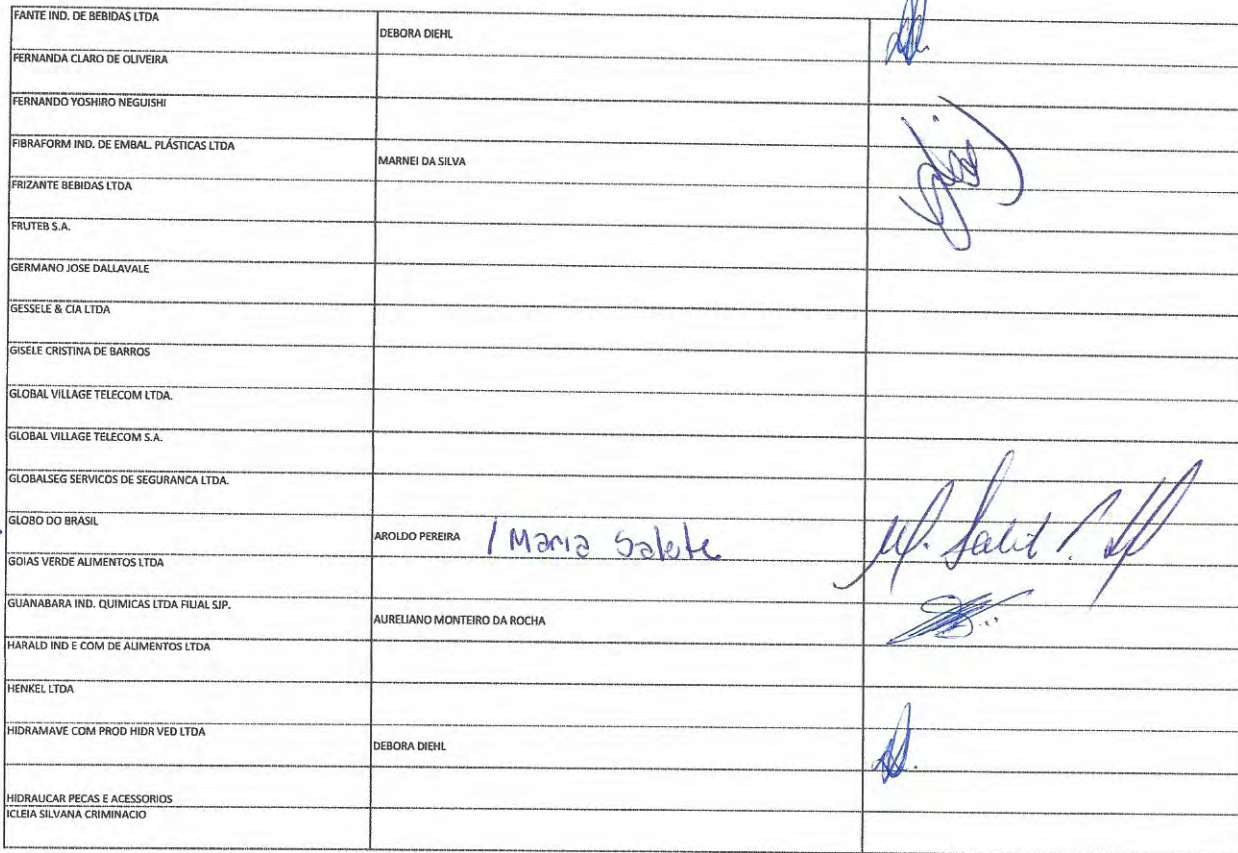 FANTE IND. DE BEBIDAS LTDA
DEBORA DIEHL
FERNANDA CLARO DE OLIVEIRA
FERNANDO YOSHIRO NEGUISHI
FIBRAFORM IND. DE EMBAL. PLÁSTICAS LTDA
MARNEI DA SILVA
FRIZANTE BEBIDAS LTDA
FRUTEB S.A.
GERMANO JOSE DALLAVALE
GESSELE & CIA LTDA
GISELE CRISTINA DE BARROS
GLOBAL VILLAGE TELECOM LTDA.
GLOBAL VILLAGE TELECOM S.A.
GLOBALSEG SERVICOS DE SEGURANCA LTDA.
GLOBO DO BRASIL
AROLDO PEREIRA / Maria Salete
GOIAS VERDE ALIMENTOS LTDA
GUANABARA IND. QUIMICAS LTDA FILIAL SJP.
AURELIANO MONTEIRO DA ROCHA
HARALD IND E COM DE ALIMENTOS LTDA
HENKEL LTDA
HIDRAMAVE COM PROD HIDR VED LTDA
DEBORA DIEHL
HIDRAUCAR PECAS E ACESSORIOS
ICLEIA SILVANA CRIMINACIO